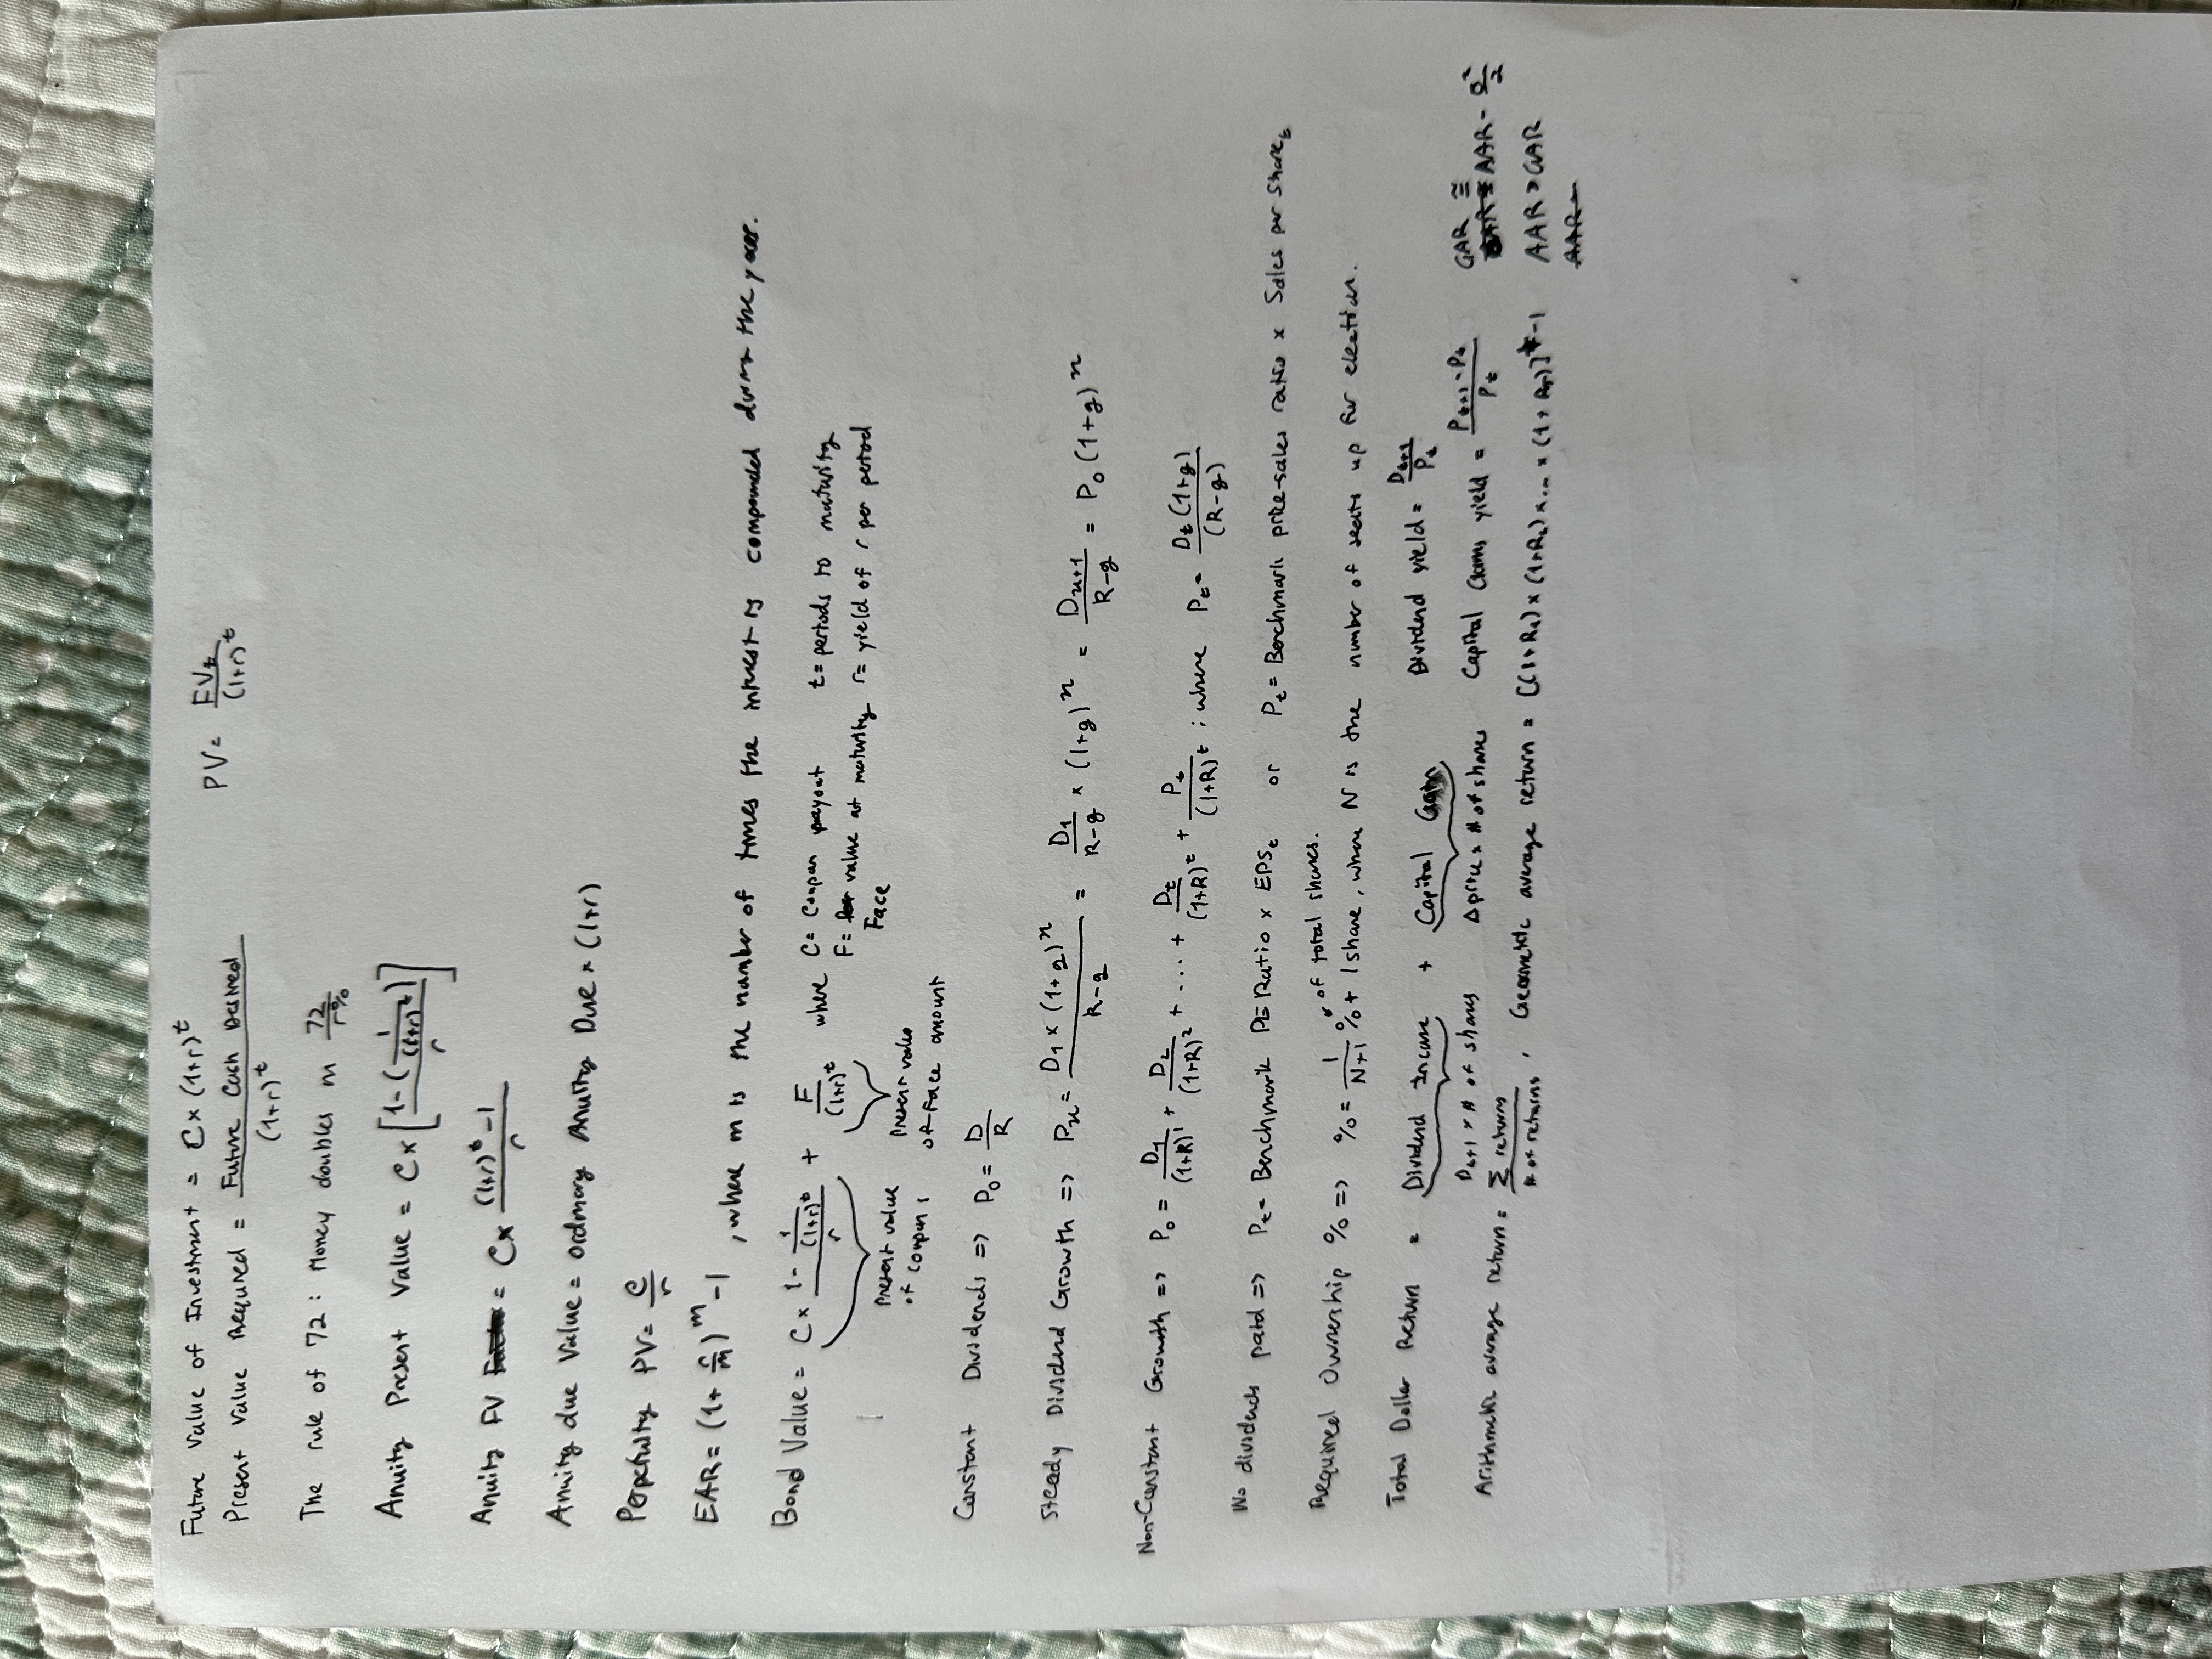 Future Value of Investment = C × (1+r)^t
PV = FV_t / (1+r)^t
Present Value Required = Future Cash Desired / (1+r)^t
The rule of 72 : Money doubles in 72 / r%
Anuity Present Value = C × [ (1 - ( 1 / (1+r)^t )) / r ]
Anuity FV = C × ((1+r)^t - 1) / r
Anuity due Value = ordinary Anuity Due × (1+r)
Perpetuity PV = C / r
EAR = (1 + r/m)^m - 1 , where m is the number of times the interest is compounded during the year.
Bond Value = C × (1 - 1/(1+r)^t) / r + F / (1+r)^t where C = Coupon payout t = periods to maturity
F = value at maturity r = yield of r per period
Face
Present value of coupons
Present value of Face amount
Constant Dividends => P₀ = D / R
Steady Dividend Growth => P_n = D₁ × (1+g)^n / (R-g) = D₁ / (R-g) × (1+g)^n = D_n+1 / (R-g) = P₀ (1+g)^n
Non-Constant Growth => P₀ = D₁ / (1+R)^1 + D₂ / (1+R)^2 + ... + D_t / (1+R)^t + P_t / (1+R)^t ; where P_t = D_t (1+g) / (R-g)
No dividends paid => P_t = Benchmark PE Ratio × EPS_t or P_t = Benchmark price-sales ratio × Sales per Share_t
Required Ownership % => % = 1 / (N+1) % of total shares. + 1 share, where N is the number of seats up for election.
Total Dollar Return = Dividend Income + Capital Gain
Dividend yield = D_t+1 / P_t
D_t+1 × # of shares
Δprice × # of shares
Capital Gains yield = (P_t+1 - P_t) / P_t
GAR ≅ AAR - σ² / 2
Arithmetic average return = Σ returns / # of returns , Geometric average return = [(1+R₁) × (1+R₂) × ... × (1+R_T)] -1
AAR > GAR